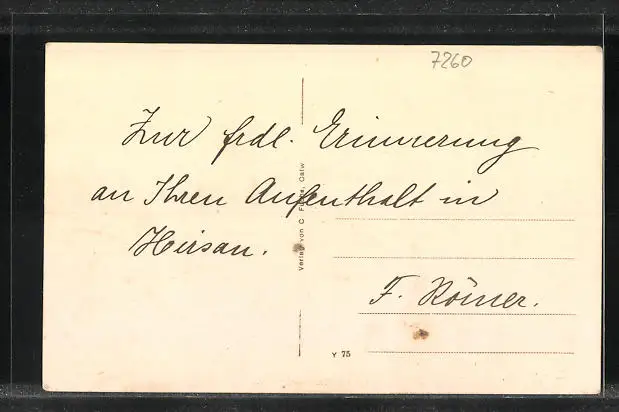 7260
Zur frdl. Erinnerung
an Ihren Aufenthalt in
Hirsau.
F. Römer.
Verlag von C. Fuchs, Calw
Y 75